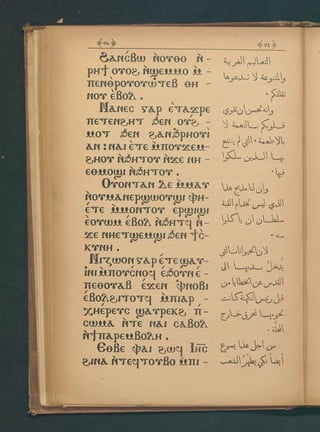 Ϩⲁⲛⲥⲃⲱ ⲛ̀ⲟⲩⲑⲟ ⲛ̀-
ⲣⲏϯ ⲟⲩⲟϩ ⲛ̀ϣⲉⲙⲙⲟ ⲙ̀-
ⲡⲉⲛⲑⲣⲟⲩⲟⲩⲱⲧⲉⲃ ⲑⲏ-
ⲛⲟⲩ ⲉⲃⲟⲗ .
Ⲛⲁⲛⲉⲥ ⲅⲁⲣ ⲉ̀ⲧⲁϫⲣⲉ
ⲡⲉⲧⲉⲛϩⲏⲧ ϧⲉⲛ ⲟⲩϩ-
ⲙⲟⲧ ϧⲉⲛ ϩⲁⲛϧⲣⲏⲟⲩⲓ̀
ⲁⲛ : ⲛⲁⲓ ⲉ̀ⲧⲉ ⲙ̀ⲡⲟⲩϫⲉⲙ-
ϩⲏⲟⲩ ⲛ̀ϧⲏⲧⲟⲩ ⲛ̀ϫⲉ ⲛⲏ
ⲉⲑⲙⲟϣⲓ ⲛ̀ϧⲏⲧⲟⲩ .
Ⲟⲩⲟⲛⲧⲁⲛ ⲇⲉ ⲙ̀ⲙⲁⲩ
ⲛ̀ⲟⲩⲙⲁⲛⲉⲣϣⲱⲟⲩϣⲓ ⲫⲏ-
ⲉ̀ⲧⲉ ⲙ̀ⲙⲟⲛⲧⲟⲩ ⲉⲣϣⲓϣⲓ
ⲉ̀ⲟⲩⲱⲙ ⲉ̀ⲃⲟⲗ ⲛ̀ϧⲏⲧϥ ⲛ̀-
ϫⲉ ⲛⲏⲉⲧϣⲉⲙϣⲓ ϧⲉⲛ ϯⲥ̀-
ⲕⲩⲛⲏ .
Ⲛⲓⲍⲱⲟⲛ ⲅⲁⲣ ⲉ̀ⲧⲉ ϣⲁⲩ-
ⲓ̀ⲛⲓ ⲙ̀ⲡⲟⲩⲥ̀ⲛⲟϥ ⲉ̀ϧⲟⲩⲛ ⲉ̀-
ⲡⲉⲑⲟⲩⲁⲃ ⲉ̀ϫⲉⲛ ⲫ̀ⲛⲟⲃⲓ
ⲉ̀ⲃⲟⲗϩⲓⲧⲟⲧϥ ⲙ̀ⲡⲓⲁⲣ-
ⲭⲏⲉ̀ⲣⲉⲩⲥ ϣⲁⲩⲣⲉⲕϩ ⲡ̀-
ⲥⲱⲙⲁ ⲛ̀ⲧⲉ ⲛⲁⲓ ⲥⲁⲃⲟⲗ
ⲛ̀ϯⲡⲁⲣⲉⲙⲃⲟⲗⲏ .
Ⲉⲑⲃⲉ ⲫⲁⲓ ϩⲱϥ Ⲓⲏ̅ⲥ̅
ϩⲓⲛⲁ ⲛ̀ⲧⲉϥⲧⲟⲩⲃⲟ ⲙ̀ⲡⲓ-
التعاليم الغريبة
والمتنوعة لا تدعوها
تقلكم ·
وانه لحسن ان تقوي
قلوبكم بالنعمة لا
بالاطعمة · التي لم ينتفع
بها الذين سلكوا
فيها ·
وان لنا مذبح هذا
الذي ليس لخدام القبة
سلطان ان ياكلوا
منه ·
لان الحيوانات التي
يدخل بدمها الى
القدس عن الخطايا من
قبل رئيس الكهنة كانت
لحومها تحرق خارج
المحلة ·
من اجل هذا يسوع
أيضاً لكي يطهر الشعب